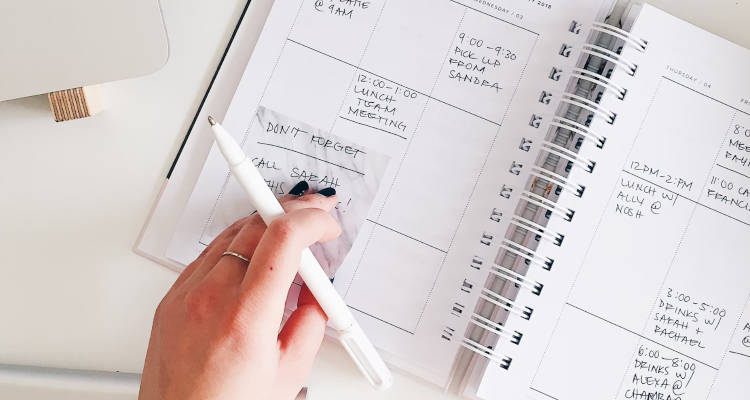 @ 9AM
WEDNESDAY / 03
2018
9:00-9:30
PICK UP
FROM
SANDRA
12:00-1:00
LUNCH
TEAM
MEETING
DON'T FORGET
CALL SARAH
THIS
!
THURSDAY / 04
12PM-2PM
LUNCH W/
ALLY @
NOSH
11:00
3:00-5:00
DRINKS W/
SARAH +
RACHAEL
6:00-8:00
DRINKS W/
ALEXA @